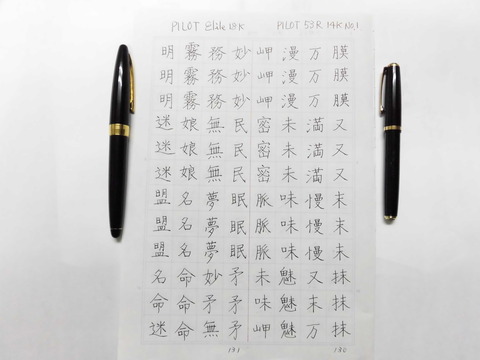 PILOT Elite 18K
PILOT 53R 14K No.1
膜膜膜又又又末末末抹抹抹
万万万満満満慢慢慢又末万
漫漫漫未未未味味味魅魅魅
岬岬岬密密密脈脈脈未味岬
妙妙妙民民民眠眠眠矛矛矛
務務務無無無夢夢夢妙矛無
霧霧霧娘娘娘名名名命命命
明明明迷迷迷盟盟盟名命迷
130
131